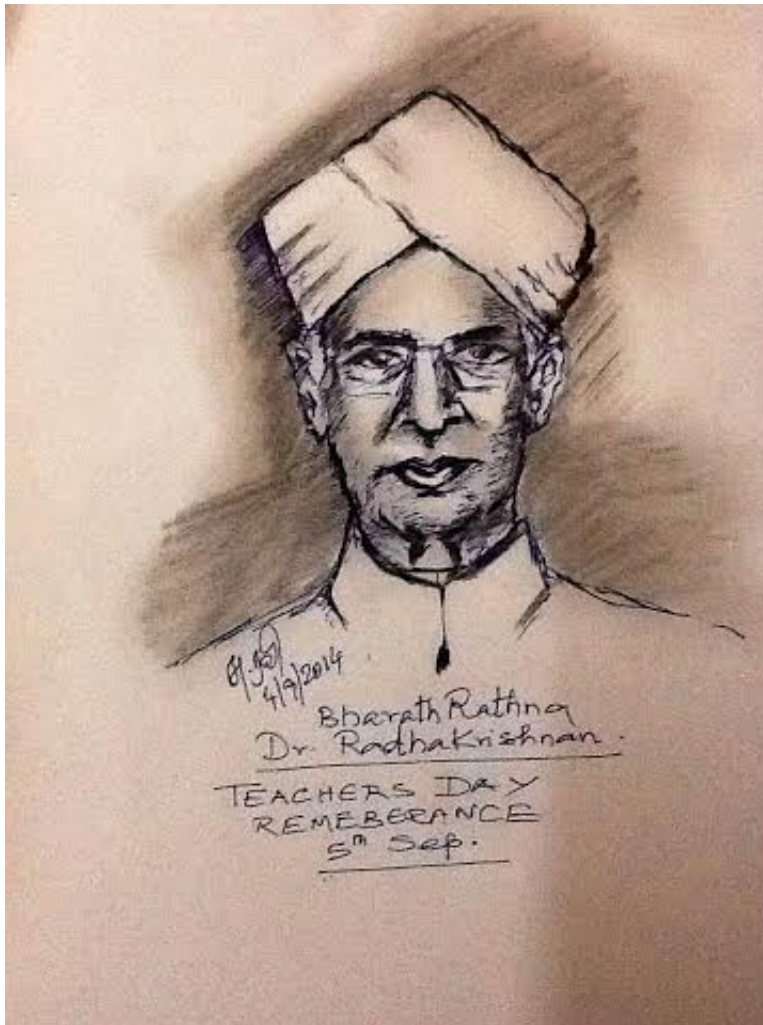 4/9/2014
Bharath Rathna
Dr. RadhaKrishnan.
TEACHERS DAY
REMEBERANCE
5th Sep.